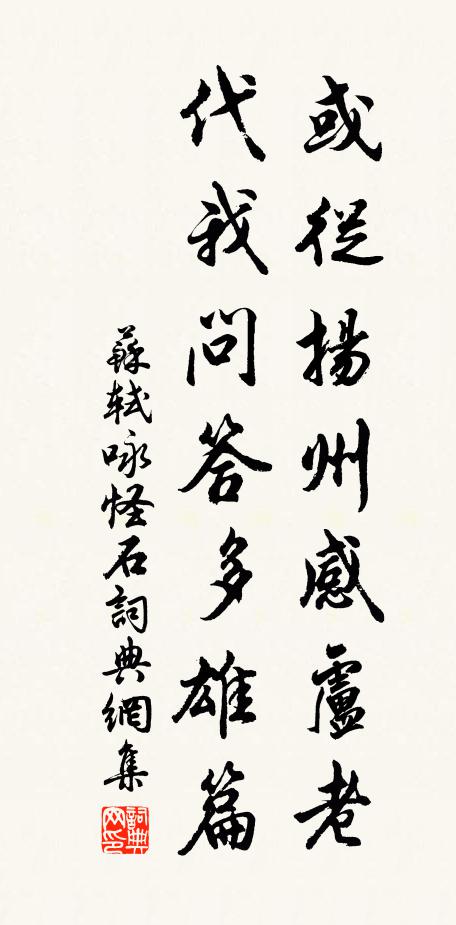 或從揚州感盧老
代我問答多雄篇
蘇軾咏怪石詞典網集
詞典网印